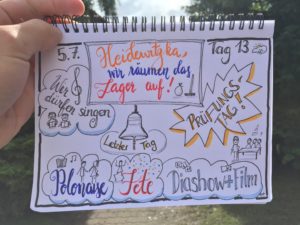 5.7.
Tag 13
Heidewitzka,
wir räumen das
Lager auf!
Wer
dürfen singen
PRÜFUNGS-
TAG!
Letzter Tag
Polonaise
Fete
Diashow+Film